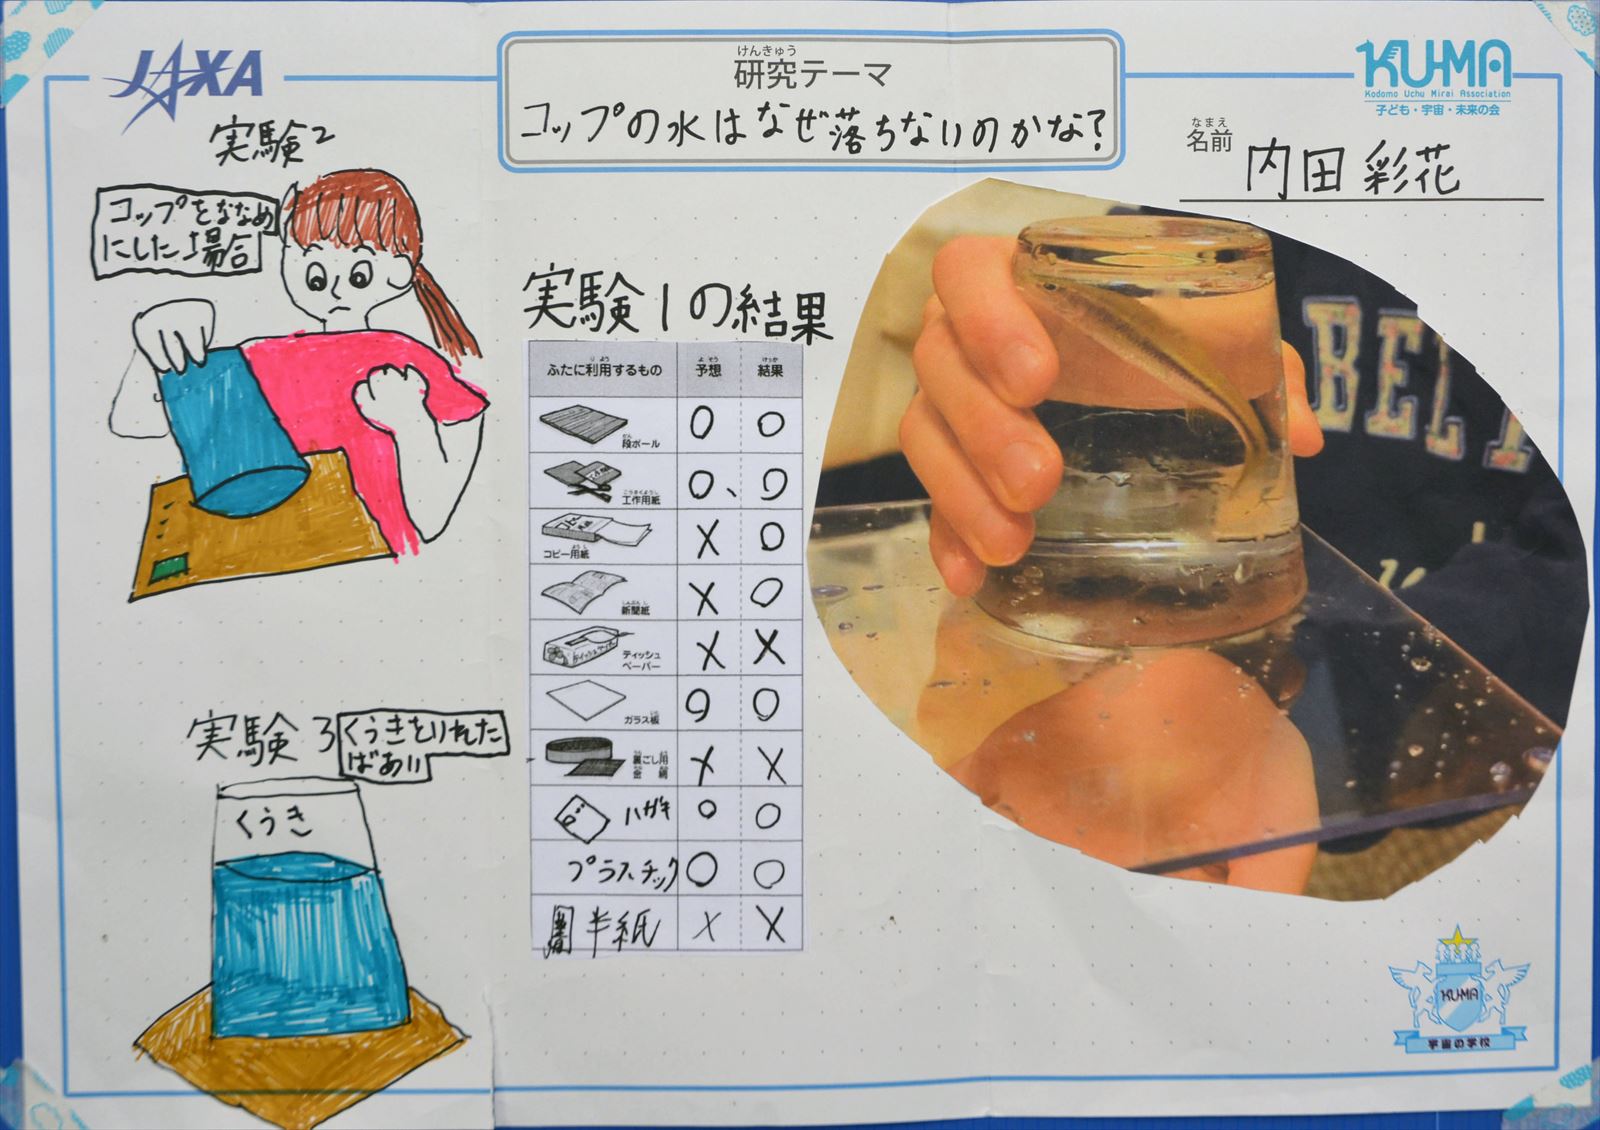 JAXA
けんきゅう
研究テーマ
コップの水はなぜ落ちないのかな?
KU-MA
Kodomo Uchu Mirai Association
子ども・宇宙・未来の会
なまえ
名前
内田 彩花
実験2
コップをななめ
にした場合
実験3
くうきをいれた
ばあい
くうき
実験1の結果
ふたに利用するもの 予想 結果
段ボール 〇 〇
工作用紙 〇、〇
コピー用紙 × 〇
新聞紙 × 〇
ティッシュ
ペーパー × ×
ガラス板 〇 〇
裏ごし用
金網 × ×
ハガキ 〇 〇
プラスチック 〇 〇
半紙 × ×
BEL
KU-MA
宇宙の学校